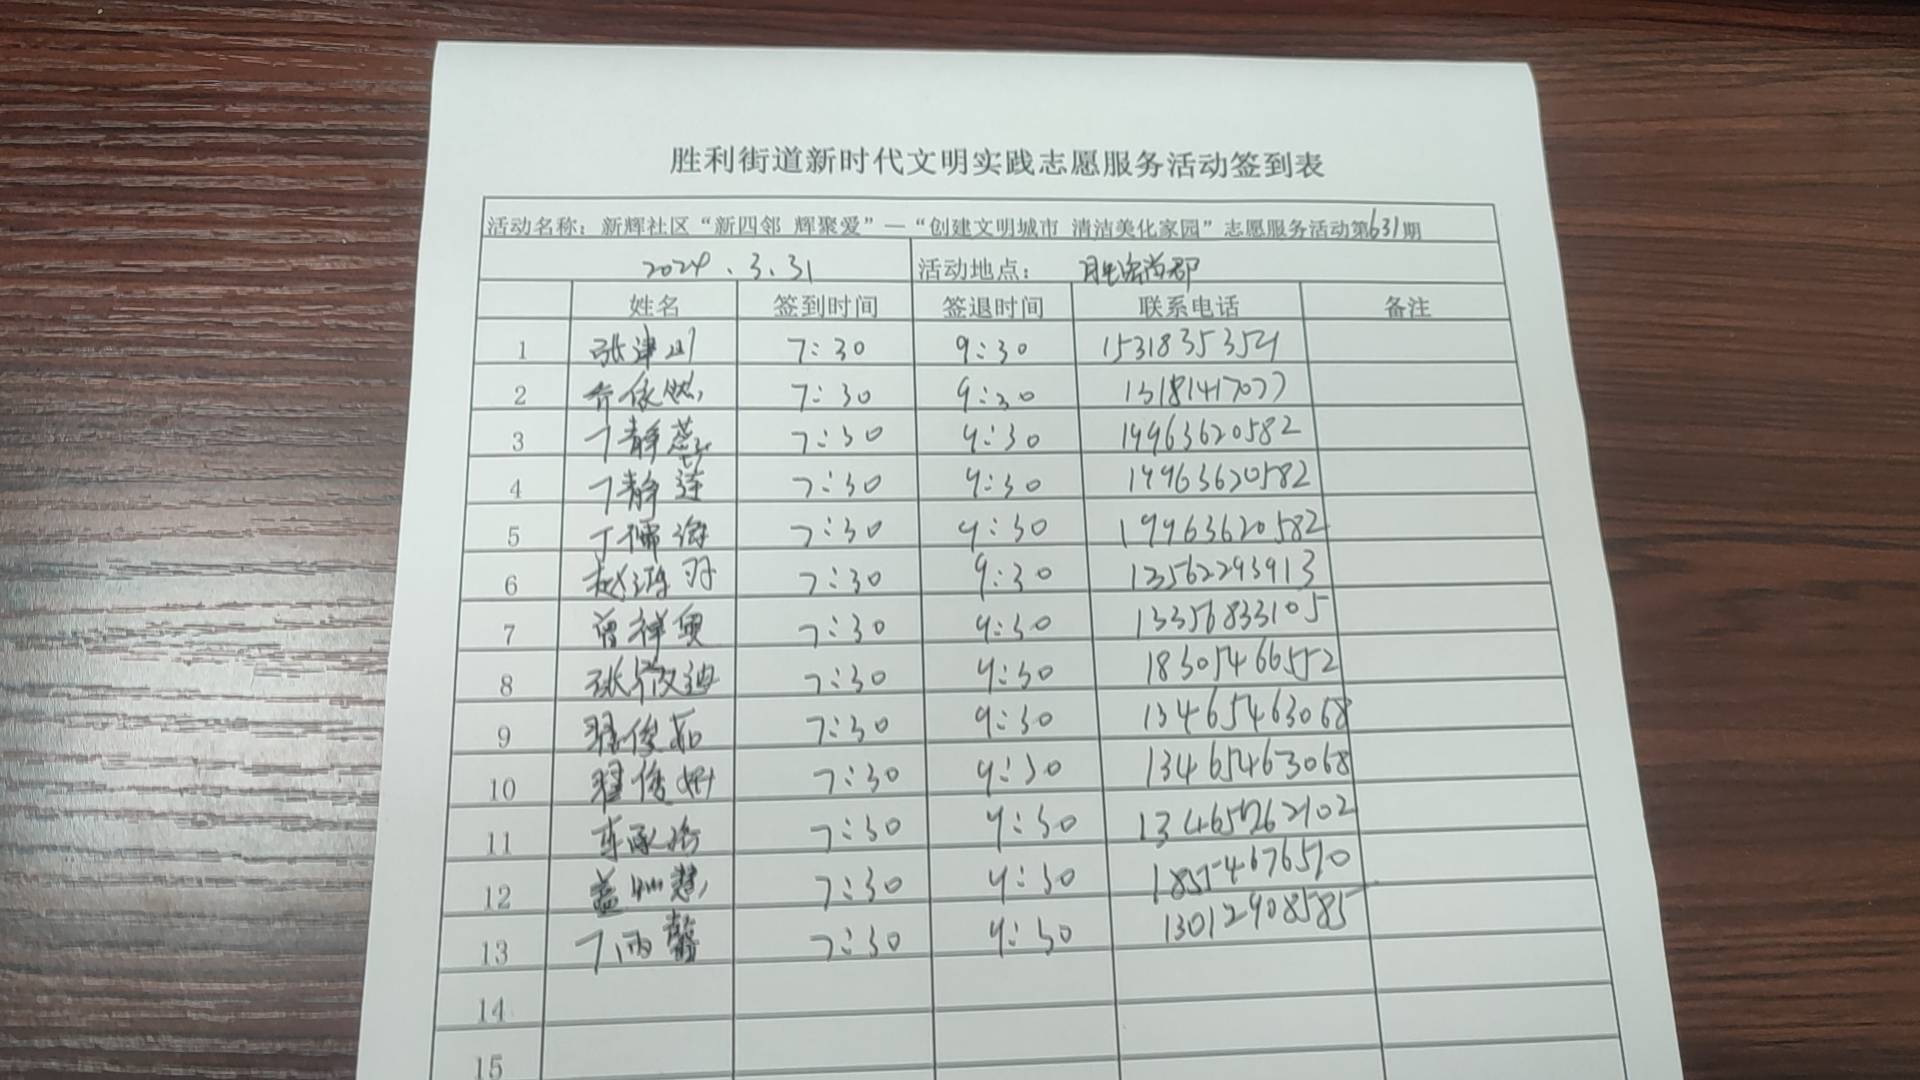 胜利街道新时代文明实践志愿服务活动签到表
活动名称：新辉社区“新四邻 辉聚爱”—“创建文明城市 清洁美化家园”志愿服务活动第631期
2024.3.31 活动地点：
姓名 签到时间 签退时间 联系电话 备注
1 张津 7:30 9:30
2 依 7:30 9:30 13181417077
3 丁静蕊 7:30 9:30 19963620582
4 丁静莲 7:30 9:30 19963620582
5 丁儒海 7:30 9:30 19963620582
6 赵 7:30 9:30 13562293913
7 曾祥奥 7:30 9:30 13356833105
8 张筱迪 7:30 9:30 18305466552
9 翟俊茹 7:30 9:30 13465463068
10 翟俊 7:30 9:30 13465463068
11 7:30 9:30
12 慧 7:30 9:30
13 丁雨馨 7:30 9:30 13012908585
14
15